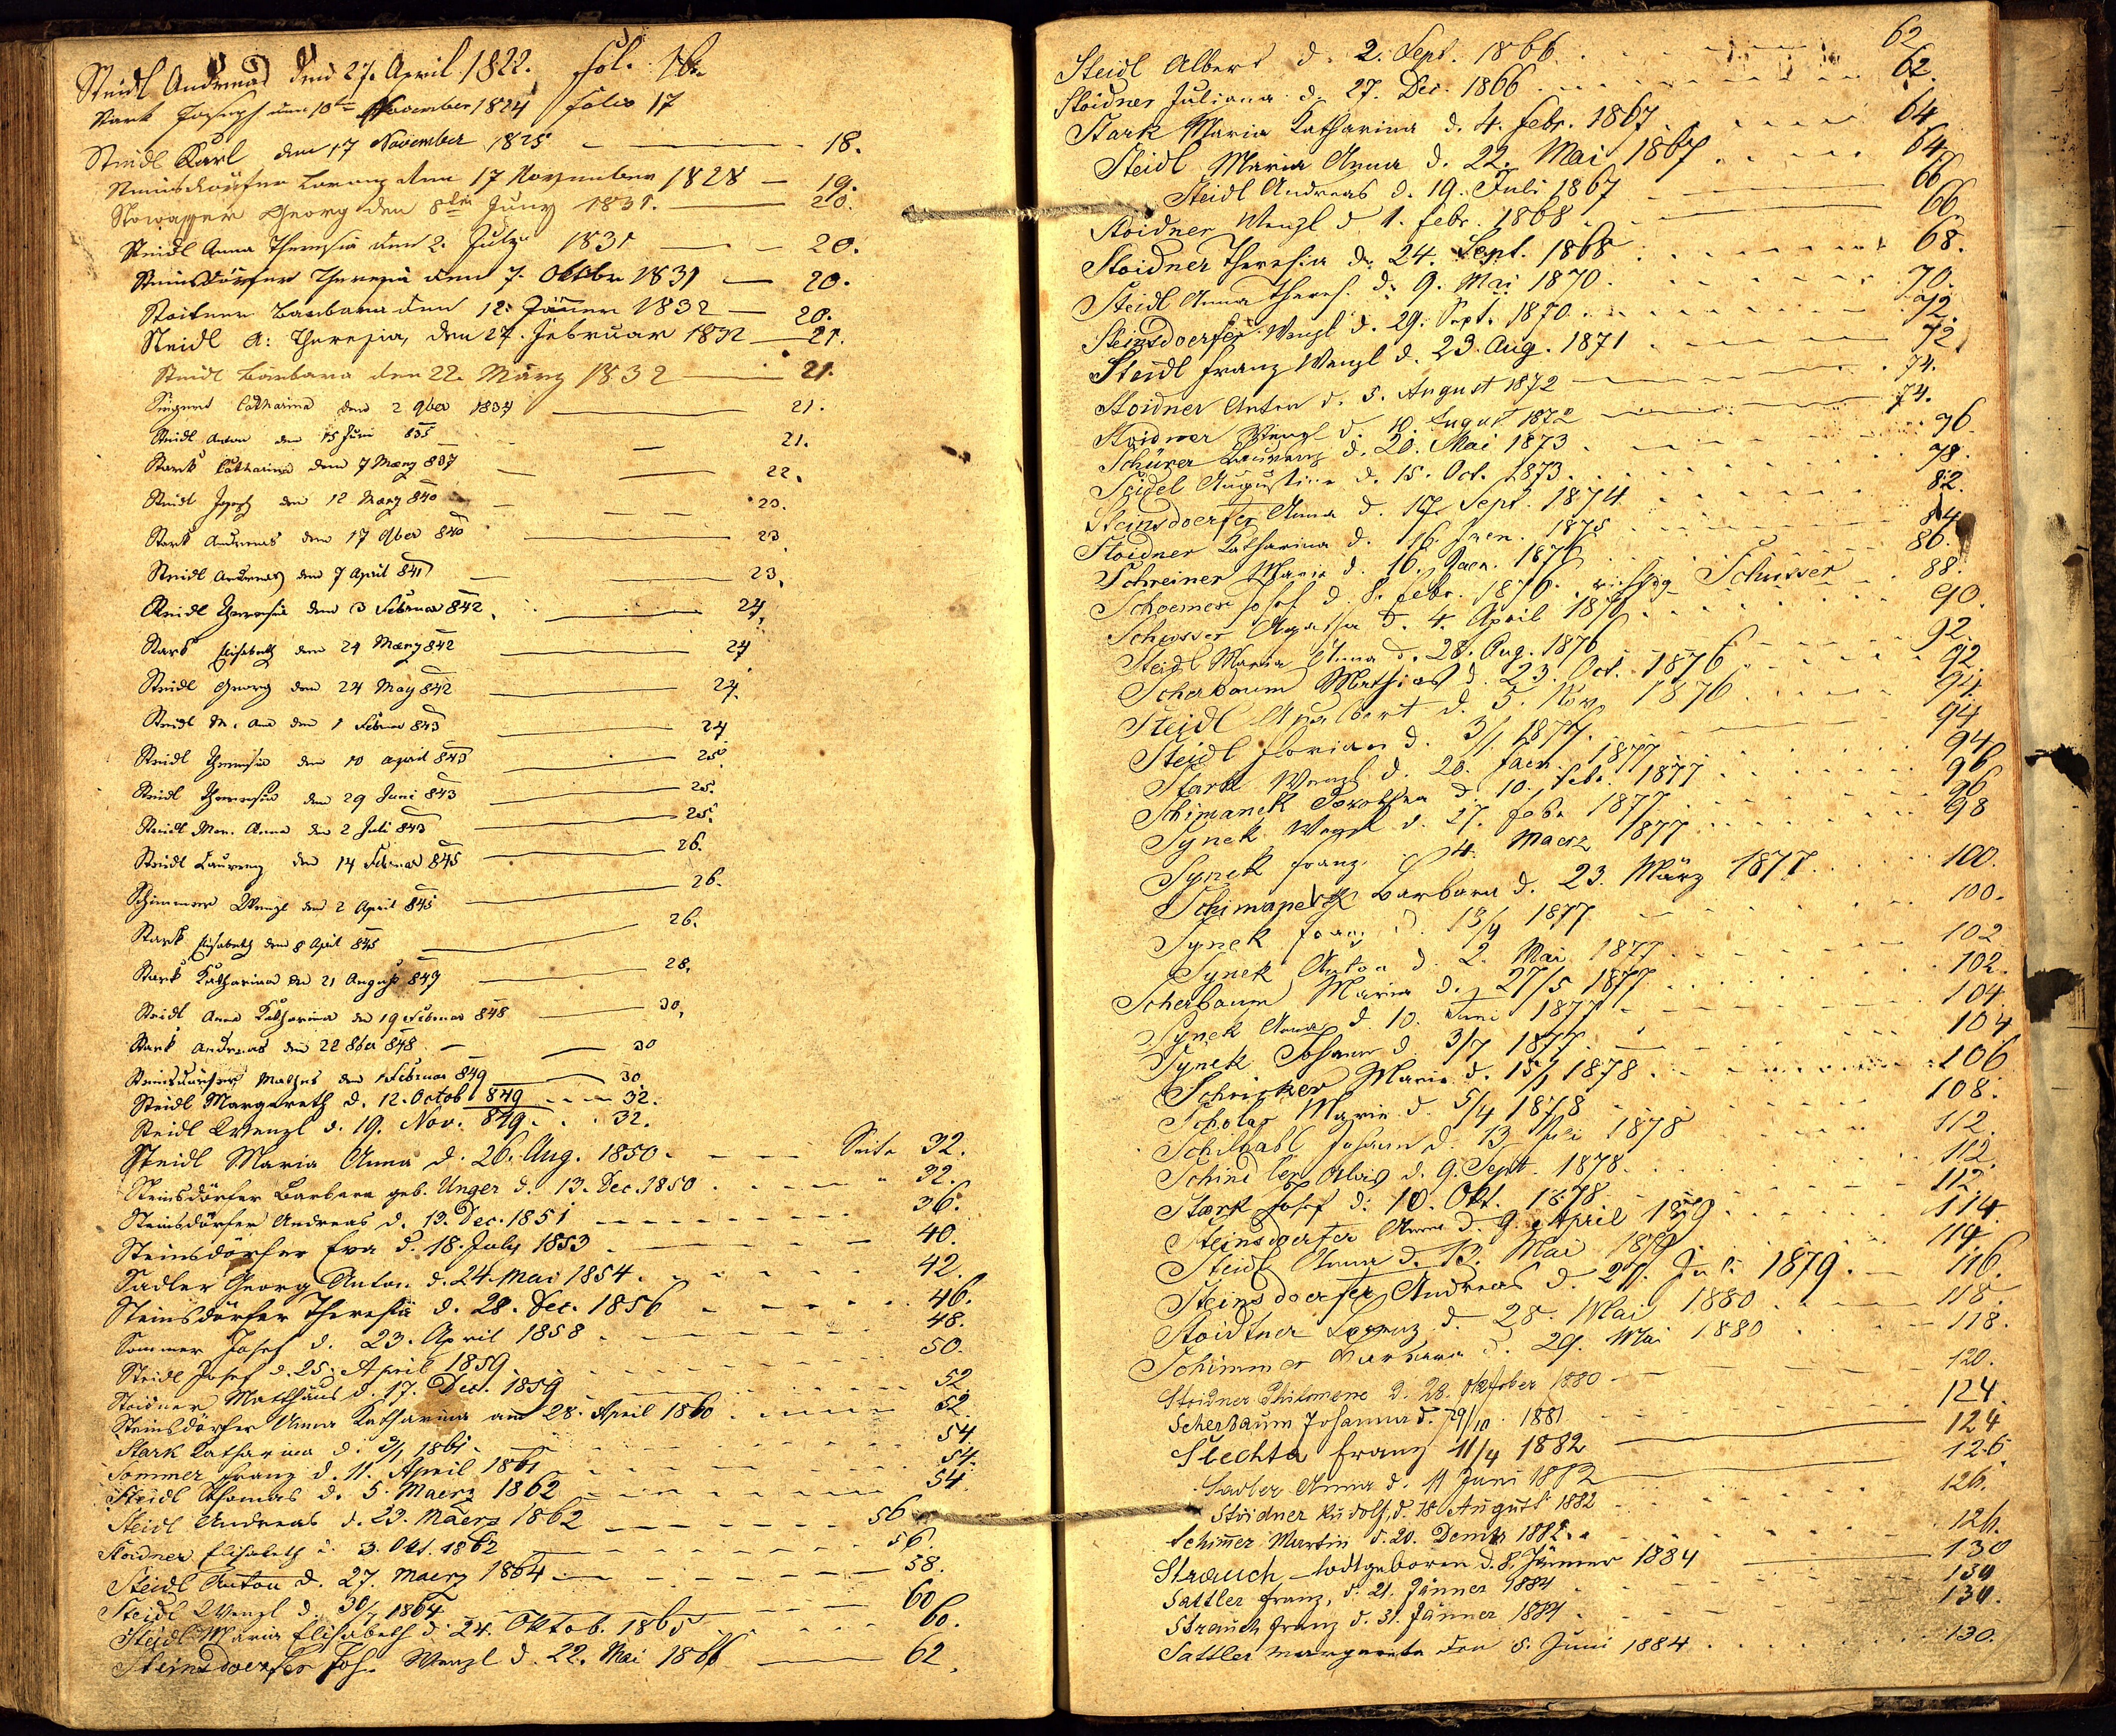 Steidl Andreas den 27. April 1822. fol. 16.
Stark Joseph den 10te November 1824 folio 17
Steidl Karl den 17 November 1825 18.
Steinsdörfer Lorenz den 17 November 1828 — 19.
Georg den 8ten Juny 1831. 20.
Steidl Anna Theresia den 2. July 1831 20.
Steinsdörfer Theresia den 7. Oktober 1831 — 20.
Stoitner Barbara den 12. Jänner 1832 — 20.
Steidl A: Theresia, den 27. Februar 1832 — 21.
Steidl Barbara den 22. März 1832 21.
Catharina den 2 9ber 1834 21.
Steidl Anton den 15 Juni 835 21.
Stark Catharina den 7 Maerz 837 22.
Steidl Joseph den 12 Marz 840 23.
Stark Andreas den 17 9ber 840 23
Steidl Andreas den 7 April 841 23.
Steidl Theresia den 3 Februar 842. 24.
Stark Elisabeth den 24 Maerz 842 24
Steidl Georg den 24 May 842 24.
Steidl M. Ana den 1 Februar 843 24
Steidl Theresia den 10 April 843 25.
Steidl Theresia den 29 Juni 843 25.
Steidl Mar. Anna den 2 Juli 843 25.
Steidl Laurenz den 14 Februar 845 26.
Schimmer Wenzl den 2 April 845 26.
Stark Elisabeth den 8 April 845 26.
Stark Katharina den 21 August 847 28.
Steidl Anna Katharina den 19 Februar 848 30.
Stark Andreas den 22 8ber 848. 30
Steinsdörfer Mathes den 1 Februar 849 30
Steidl Margareth d. 12. Octob 849 32.
Steidl Wenzl d. 19. Nov. 849. 32.
Steidl Maria Anna d. 26. Aug. 1850. Seite 32.
Steinsdörfer Barbara geb. Unger d. 13. Dec. 1850. " 32.
Steinsdörfer Andreas d. 13. Dec. 1851 36.
Steinsdörfer Eva d. 18. July 1853 40.
Sadler Georg Anton d. 24. Mai 1854. 42.
Steinsdörfer Theresia d. 28. Dec. 1856 46.
Sommer Josef d. 23. April 1858 48.
Steidl Josef d. 25. April 1859. 50.
Stoidner Matthäus d. 17. Dec. 1859 52.
Steinsdörfer Anna Katharina am 28. April 1860 52.
Stark Katharina d. 3/1 1861. 54
Sommer Franz d. 11. April 1861 54.
Steidl Thomas d. 5. Maerz 1862 54
Steidl Andreas d. 23. Maerz 1862 56
Stoidner Elisabeth d. 3. Okt. 1862 56.
Steidl Anton d. 27. Maerz 1864 58.
Steidl Wenzl d. 30/7 1864 60
Steidl Maria Elisabeth d. 24. Oktob. 1865 60.
Steinsdoerfer Joh. Wenzl d. 22. Mai 1866 62.
Steidl Albert d. 2. Sept. 1866. 62
Stoidner Juliana d. 27. Dec. 1866 62.
Stark Maria Katharina d. 4. Febr. 1867 64
Steidl Maria Anna d. 22. Mai 1867 64
Steidl Andreas d. 19. Juli 1867 66
Stoidner Wenzl d. 1. Febr. 1868 66
Stoidner Theresia d. 24. Sept. 1868 68.
Steidl Anna Theres. d. 9. Mai 1870. 70.
Steinsdoerfer Wenzl d. 29. Sept. 1870 72.
Steidl Franz Wenzl d. 23. Aug. 1871 72
Stoidner Anton d. 5. August 1872 74.
Stoidner Wenzl d. August 1872 74.
Schürer Laurenz d. 20. Mai 1873 76
Seidel Augustine d. 15. Oct. 1873 78.
Steinsdoerfer Anna d. 17. Sept. 1874 82.
Stoidner Katharina d. 16. Jaen. 1875 84
Schreiner Maria d. 16. Jaen. 1876 86.
Josef d. 8. Febr. 1876. richtig Schusser 88.
Schusser Agatha d. 4. April 1876 90.
Steidl Maria Anna d. 28. Aug. 1876 92.
Scherbaum Mathias d. 23. Oct. 1876 92.
Steidl Adalbert d. 5. Nov. 1876 94.
Steidl Florian d. 3/1. 1877. 94
Stark Wenzl d. 20. Jaen. 1877 94
Schimanek Dorothea d. 10. Febr. 1877 96
Synek Wenzl d. 27. Febr. 1877 96
Synek Franz 4. Maerz 1877 98
Schimanek Barbara d. 23. März 1877. 100.
Synek Franz d. 13/4 1877 100.
Synek Anton d. 2. Mai 1877 102
Scherbaum Maria d. 27/5 1877 102.
Synek Anna d. 10. Juni 1877 104.
Synek Johann d. 3/7 1877 104
Schricker Maria d. 15/1 1878. 106
Scholar Maria d. 5/4 1878 108.
Schilhabl Johann d. 13 Juli 1878 112.
Schindler Alois d. 9. Sept. 1878. 112.
Stark Josef d. 10. Okt. 1878 112.
Steinsdoerfer Anna d. 9. April 1879 114.
Steidl Anna d. 13. Mai 1879 114.
Steinsdoerfer Andreas d. 21. Juli 1879. 116.
Stoidtner Lorenz d. 28. Mai 1880 118.
Schimmer Barbara d. 29. Mai 1880 118.
Stoidner Philomene d. 28. Oktober 1880 120.
Scherbaum Johanna d. 29/10. 1881 124.
Slechta Franz 11/4 1882 124
Sadler Anna d. 11 Juni 1882 126.
Stoidner Rudolf, d. 18 August 1882 126.
Schimer Martin d. 20. 1882. 126.
Strauch todtgeboren d. 8. Jänner 1884 130
Sattler Franz, d. 21. Jänner 1884 130
Strauch Franz d. 31. Jänner 1884 130.
Sattler Margareta den 5. Juni 1884 130.